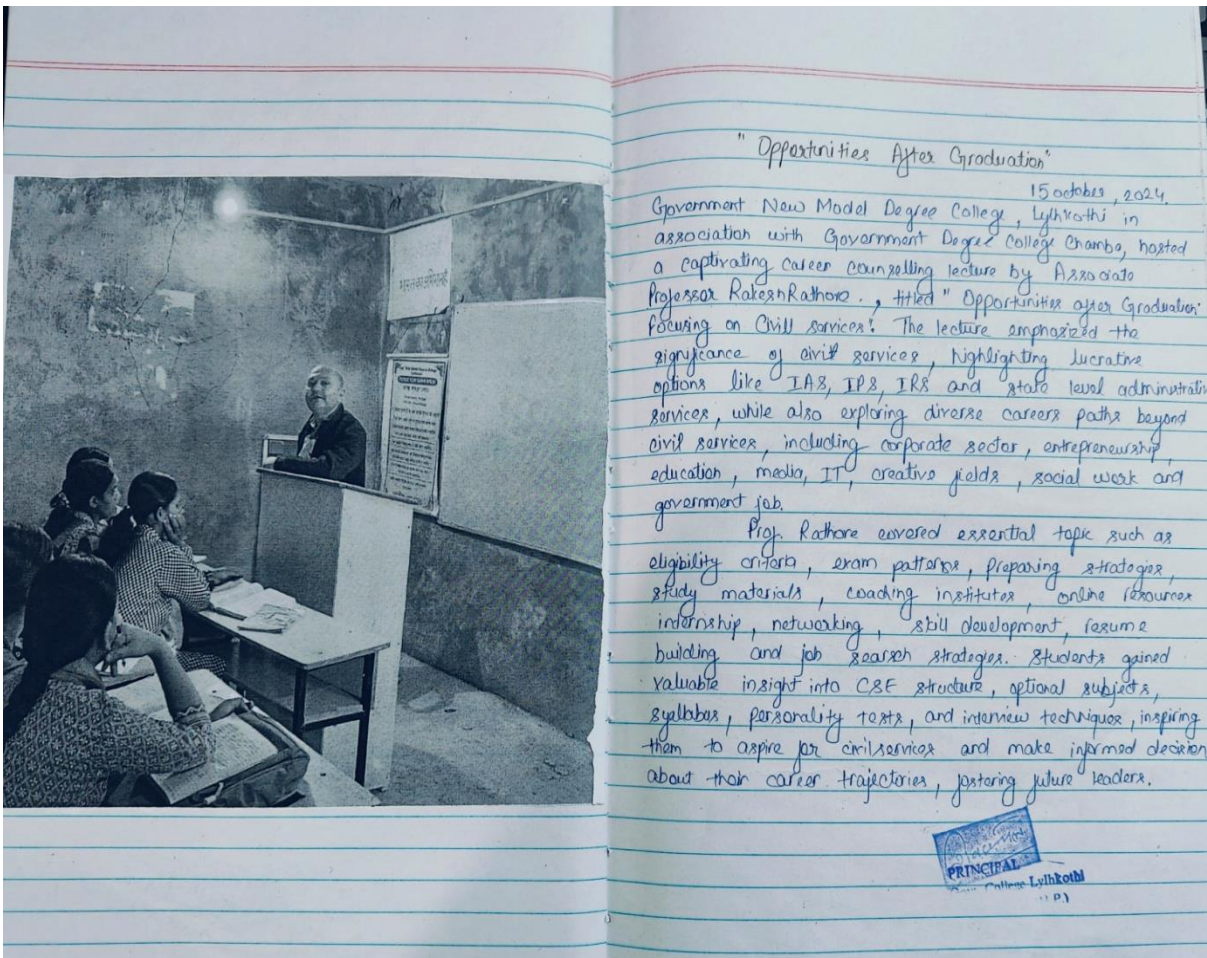 "Opportunities After Graduation"
15 october, 2024.
Government New Model Degree College, Lylhkothi in
association with Government Degree College Chamba, hosted
a captivating career counselling lecture by Associate
Professor Rakesh Rathore., titled "Opportunities after Graduation
Focusing on Civill services". The lecture emphasized the
significance of civil services, highlighting lucrative
options like IAS, IPS, IRS and state level administrativ
services, while also exploring diverse careers paths beyond
civil services, including corporate sector, entrepreneurship,
education, media, IT, creative fields, social work and
government job.
Prof. Rathore covered essential topic such as
eligibility criteria, exam patterns, preparing strategies,
study materials, coaching institutes, online resources
internship, networking, skill development, resume
building and job search strategies. Students gained
valuable insight into CSE structure, optional subjects,
syallabus, personality tests, and interview techniques, inspiring
them to aspire for civil services and make informed decision
about their career trajectories, fostering future leaders.
PRINCIPAL
College Lylhkothi
P.)